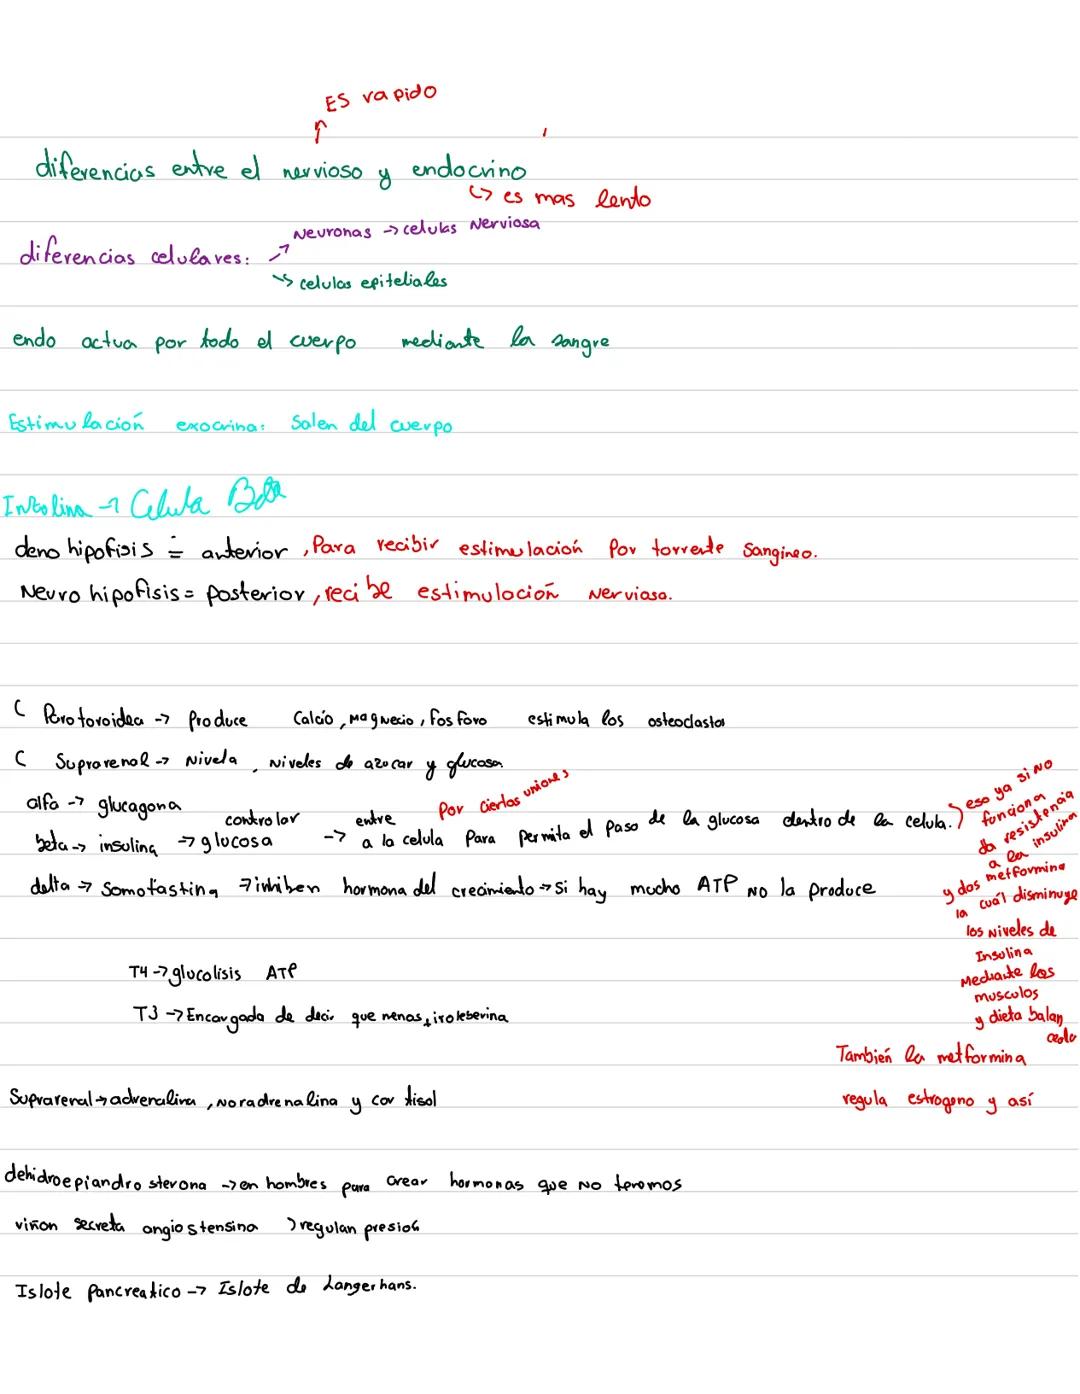 ES rapido
diferencias entre el nervioso y endocrino
↳ es mas lento
diferencias celulares: → Neuronas → celulas Nerviosa
→ celulas epiteliales
endo actua por todo el cuerpo mediante la sangre
Estimulación exocrina: Salen del cuerpo
→ Celula Beta
deno hipofisis = anterior, Para recibir estimulación Por torrente Sangineo.
Neuro hipofisis = Posterior, recibe estimulación Nerviosa.
( Parotoroidea → Produce Calcio, Magnecio, Fosforo estimula los osteoclastos
( Suprarenal → Nivela, Niveles de azucar y glucosa
alfa → glucagona
Por ciertas uniones
controlar entre
beta → insulina → glucosa → a la celula Para Permita el Paso de la glucosa dentro de la celula.
delta → Somotastina → inhiben hormona del crecimiento → Si hay mucho ATP No la Produce
) eso ya si No
funciona
da resistencia
a la insulina
y das metformina
la cuál disminuye
los Niveles de
Insulina
Mediante los
musculos
y dieta balan
ceda
T4 → glucolisis ATP
T3 → Encargada de decir que
También la metformina
regula estrogeno y así
Suprarenal → adrenalina, Noradrenalina y cortisol
dehidroepiandrosterona → en hombres para crear hormonas que No tenemos
riñon Secreta angiostensina ) regulan presion
Islote Pancreatico → Islote de Langerhans.